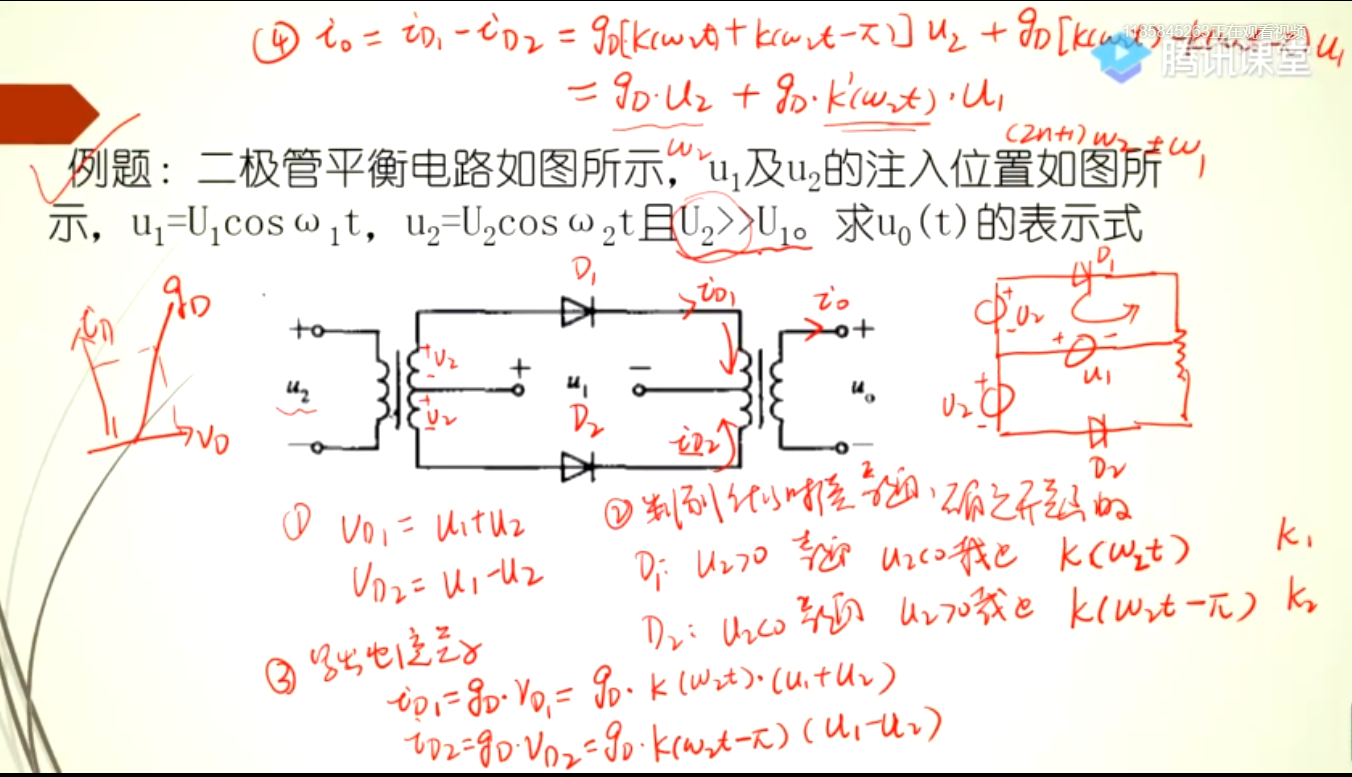 ④ i₀ = iD₁ - iD₂ = gD[k(ω₂t) + k(ω₂t-π)] u₂ + gD[k(ω₂t) - k(ω₂t-π)] u₁
正在观看视频
腾讯课堂
= gD·u₂ + gD·k'(ω₂t)·u₁
ω₂ (2n+1)ω₂ ± ω₁
例题：二极管平衡电路如图所示，u₁及u₂的注入位置如图所
示，u₁=U₁cosω₁t，u₂=U₂cosω₂t且U₂>>U₁。求u₀(t)的表示式
iD gD vD
D₁ iD₁ i₀
+ u₂ - + u₂ - + u₂ - + u₁ - + u₀ -
D₂ iD₂
D₁ + u₂ - + u₁ - u₂ + - D₂
① vD₁ = u₁+u₂
vD₂ = u₁-u₂
② 判别什么时候导通、确定开关函数
D₁: u₂>0 导通 u₂<0 截止 k(ω₂t) k₁
D₂: u₂<0 导通 u₂>0 截止 k(ω₂t-π) k₂
③ 写出电流
iD₁=gD·vD₁= gD·k(ω₂t)·(u₁+u₂)
iD₂=gD·vD₂=gD·k(ω₂t-π)(u₁-u₂)